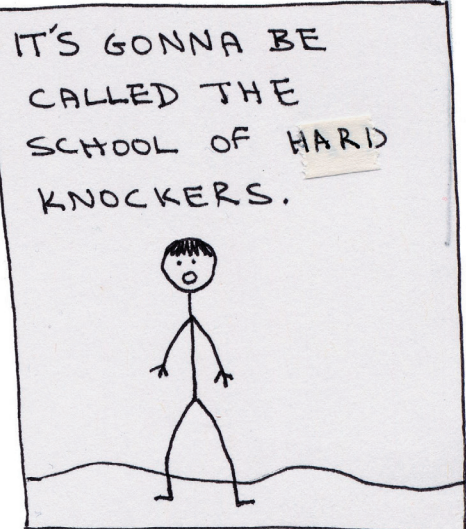 IT'S GONNA BE
CALLED THE
SCHOOL OF HARD
KNOCKERS.